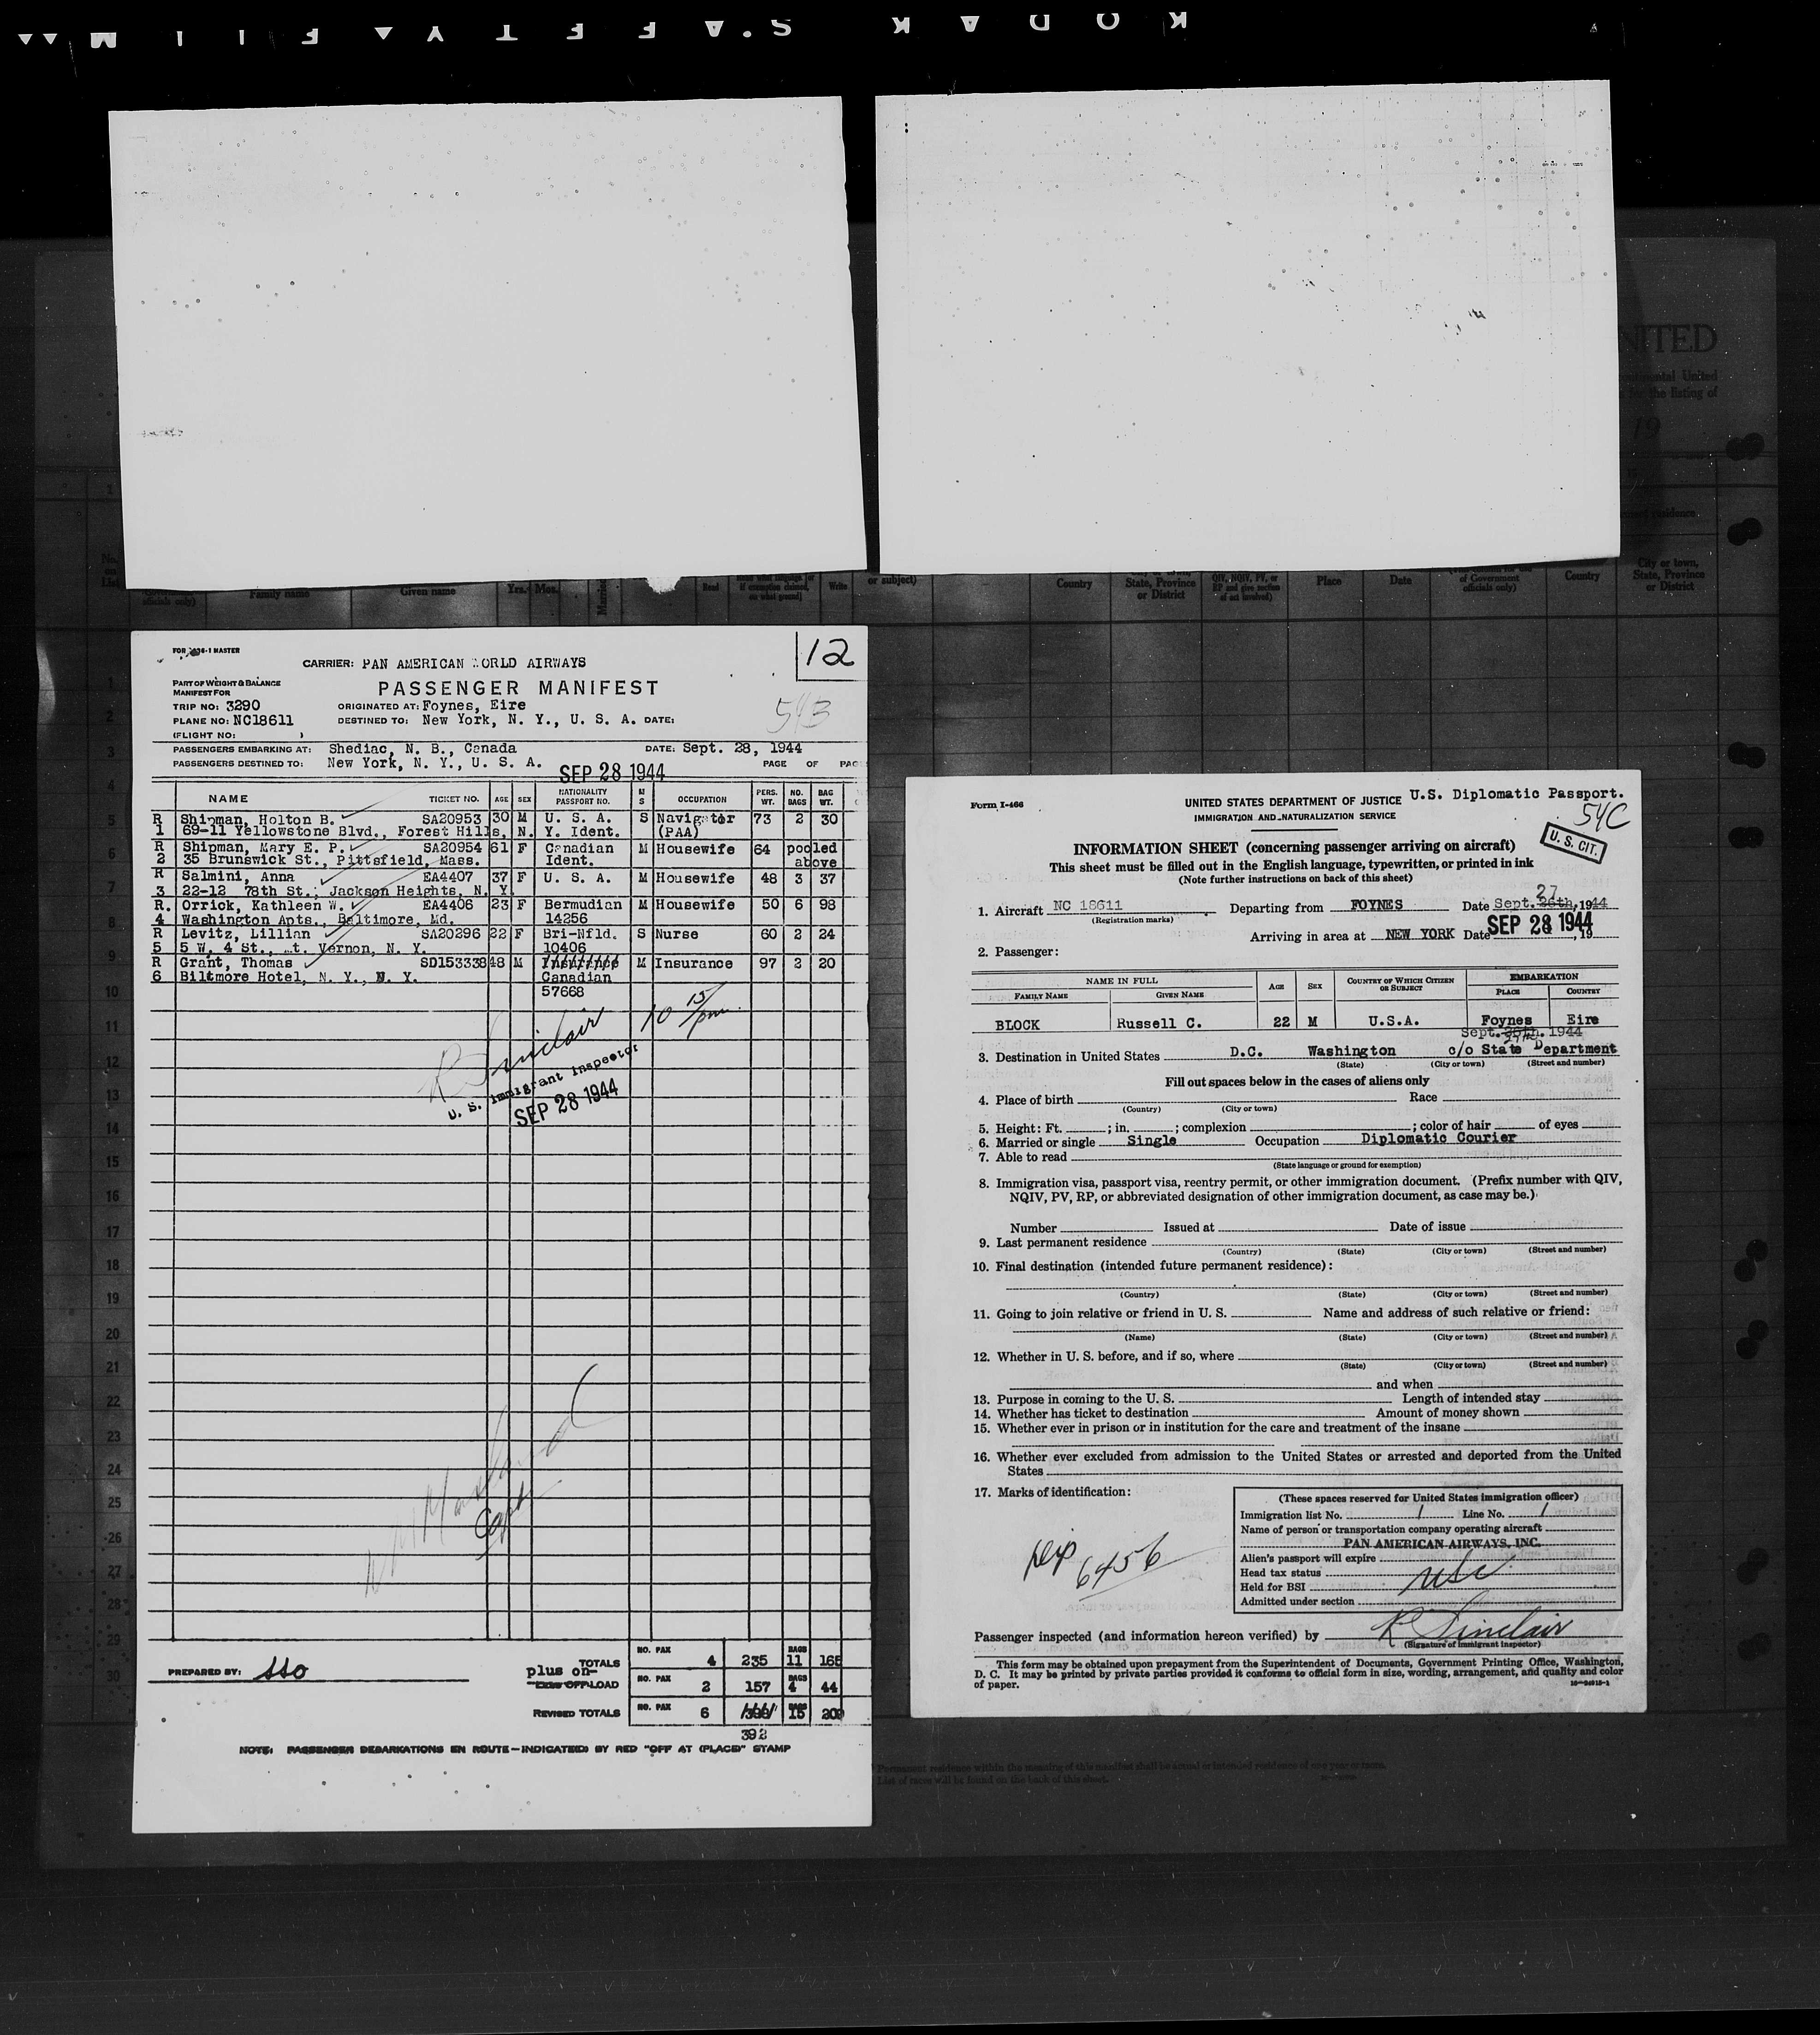 KODAK SAFETY FILM
NITED
19
or subject)
Family name
Given name
Yrs.
Mos.
Read
Write
Country
State, Province
or District
Place
Date
of Government
officials only)
Country
City or town,
State, Province
or District
12
CARRIER: PAN AMERICAN WORLD AIRWAYS
PART OF WEIGHT & BALANCE
MANIFEST FOR
PASSENGER MANIFEST
TRIP NO: 3290
ORIGINATED AT: Foynes, Eire
543
PLANE NO: NC18611
DESTINED TO: New York, N. Y., U. S. A. DATE:
(FLIGHT NO: )
PASSENGERS EMBARKING AT: Shediac, N. B., Canada DATE: Sept. 28, 1944
PASSENGERS DESTINED TO: New York, N. Y., U. S. A. PAGE OF
SEP 28 1944
NAME TICKET NO. AGE SEX NATIONALITY PASSPORT NO. M S OCCUPATION PERS. WT. NO. BAGS BAG WT.
R Shipman, Holton B. SA20953 30 M U. S. A. S Navigator 73 2 30
1 69-11 Yellowstone Blvd., Forest Hills, N. Y. Ident. (PAA)
R Shipman, Mary E. P. SA20954 61 F Canadian M Housewife 64 pooled
2 35 Brunswick St., Pittsfield, Mass. Ident. above
R Salmini, Anna EA4407 37 F U. S. A. M Housewife 48 3 37
3 22-12 78th St., Jackson Heights, N. Y.
R. Orrick, Kathleen W. EA4406 23 F Bermudian M Housewife 50 6 98
4 Washington Apts., Baltimore, Md. 14256
R Levitz, Lillian SA20296 22 F Bri-Nfld. S Nurse 60 2 24
5 5 W. 4 St., Mt. Vernon, N. Y. 10406
R Grant, Thomas SD153338 48 M Insurance M Insurance 97 2 20
6 Biltmore Hotel, N. Y., N. Y. Canadian
57668
10 15/pm
R Sinclair
U. S. Immigrant Inspector
SEP 28 1944
Capt.
TOTALS NO. PAX 4 235 BAGS 11 165
PREPARED BY: SSO
plus on-
LESS OFFLOAD NO. PAX 2 157 BAGS 4 44
REVISED TOTALS NO. PAX 6 398 BAGS 15 209
392
NOTE: PASSENGER DEBARKATIONS EN ROUTE—INDICATED BY RED "OFF AT (PLACE)" STAMP
Form I-466
UNITED STATES DEPARTMENT OF JUSTICE U.S. Diplomatic Passport.
IMMIGRATION AND NATURALIZATION SERVICE
54C
U. S. CIT.
INFORMATION SHEET (concerning passenger arriving on aircraft)
This sheet must be filled out in the English language, typewritten, or printed in ink
(Note further instructions on back of this sheet)
27
1. Aircraft NC 18611 Departing from FOYNES Date Sept. 26th, 1944
(Registration marks)
Arriving in area at NEW YORK Date SEP 28 1944, 19
2. Passenger:
NAME IN FULL AGE SEX COUNTRY OF WHICH CITIZEN OR SUBJECT EMBARKATION
FAMILY NAME GIVEN NAME PLACE COUNTRY
BLOCK Russell C. 22 M U.S.A. Foynes Eire
Sept. 26th. 1944
27th
3. Destination in United States D.C. Washington c/o State Department
(State) (City or town) (Street and number)
Fill out spaces below in the cases of aliens only
4. Place of birth Race
(Country) (City or town)
5. Height: Ft. ; in. ; complexion ; color of hair of eyes
6. Married or single Single Occupation Diplomatic Courier
7. Able to read
(State language or ground for exemption)
8. Immigration visa, passport visa, reentry permit, or other immigration document. (Prefix number with QIV,
NQIV, PV, RP, or abbreviated designation of other immigration document, as case may be.)
Number Issued at Date of issue
9. Last permanent residence
(Country) (State) (City or town) (Street and number)
10. Final destination (intended future permanent residence):
(Country) (State) (City or town) (Street and number)
11. Going to join relative or friend in U. S. Name and address of such relative or friend:
(Name) (State) (City or town) (Street and number)
12. Whether in U. S. before, and if so, where
(State) (City or town) (Street and number)
and when
13. Purpose in coming to the U. S. Length of intended stay
14. Whether has ticket to destination Amount of money shown
15. Whether ever in prison or in institution for the care and treatment of the insane
16. Whether ever excluded from admission to the United States or arrested and deported from the United
States
17. Marks of identification:
(These spaces reserved for United States immigration officer)
Immigration list No. 1 Line No. 1
Name of person or transportation company operating aircraft
PAN AMERICAN AIRWAYS, INC.
Alien's passport will expire
Head tax status
Held for BSI
Admitted under section
USC
Dip 6456
Passenger inspected (and information hereon verified) by R Sinclair
(Signature of immigrant inspector)
This form may be obtained upon prepayment from the Superintendent of Documents, Government Printing Office, Washington,
D. C. It may be printed by private parties provided it conforms to official form in size, wording, arrangement, and quality and color
of paper.
Permanent residence within the meaning of this manifest shall be actual or intended residence of one year or more.
List of races will be found on the back of this sheet.